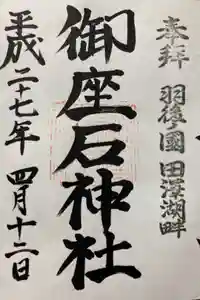 奉拝 羽後之國 田澤湖畔
御座石神社
平成二十七年 四月十二日